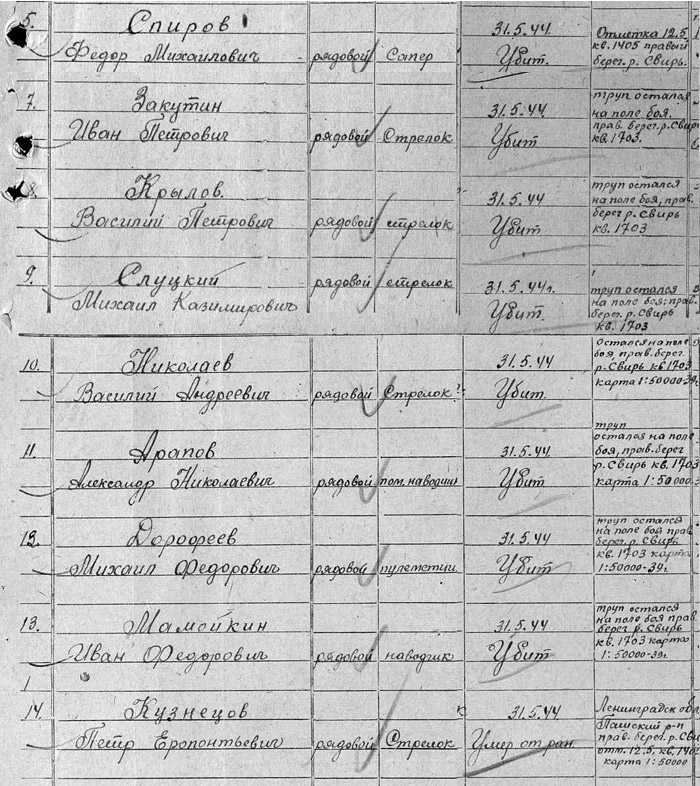 5. Спиров 31.5.44. Отметка 12.5
Федор Михаилович рядовой Сапер Убит. кв. 1405 правый
берег. р. Свирь.
7. Закутин 31.5.44 труп остался
на поле боя.
Иван Петрович рядовой Стрелок Убит прав. берег. р. Свирь
кв. 1703.
8. Крылов. 31.5.44 труп остался
на поле боя, прав.
Василий Петрович рядовой стрелок Убит берег р. Свирь
кв. 1703
9. Слуцкий рядовой стрелок 31.5.44г. труп остался
Михаил Казимирович Убит. на поле боя: прав.
берег. р. Свирь
кв. 1703
10. Николаев 31.5.44 остался на поле
боя, прав. берег.
р. Свирь кв 1703
Василий Андреевич рядовой Стрелок Убит. карта 1:50000-39г.
11. Арапов 31.5.44. труп
остался на поле
боя, прав. берег
р. Свирь кв. 1703
Александр Николаевич рядовой пом. наводчи Убит карта 1:50000
Дорофеев 31.5.44 труп остался
на поле боя прав
берег. р. Свирь
Михаил Федорович рядовой Убит кв. 1703 карта
1:50000-39г.
13. Мамойкин 31.5.44 труп остался
на поле боя прав.
берег р. Свирь
Иван Федорович рядовой наводчик Убит кв. 1703 карта
1:50000-39г.
14. Кузнецов 31.5.44 Ленинградск об
Пашский р-н
Петр Еропонтьевич рядовой Стрелок Умер от ран. прав. берег. р. Сви
отм. 12.5. кв. 140
карта 1:50000